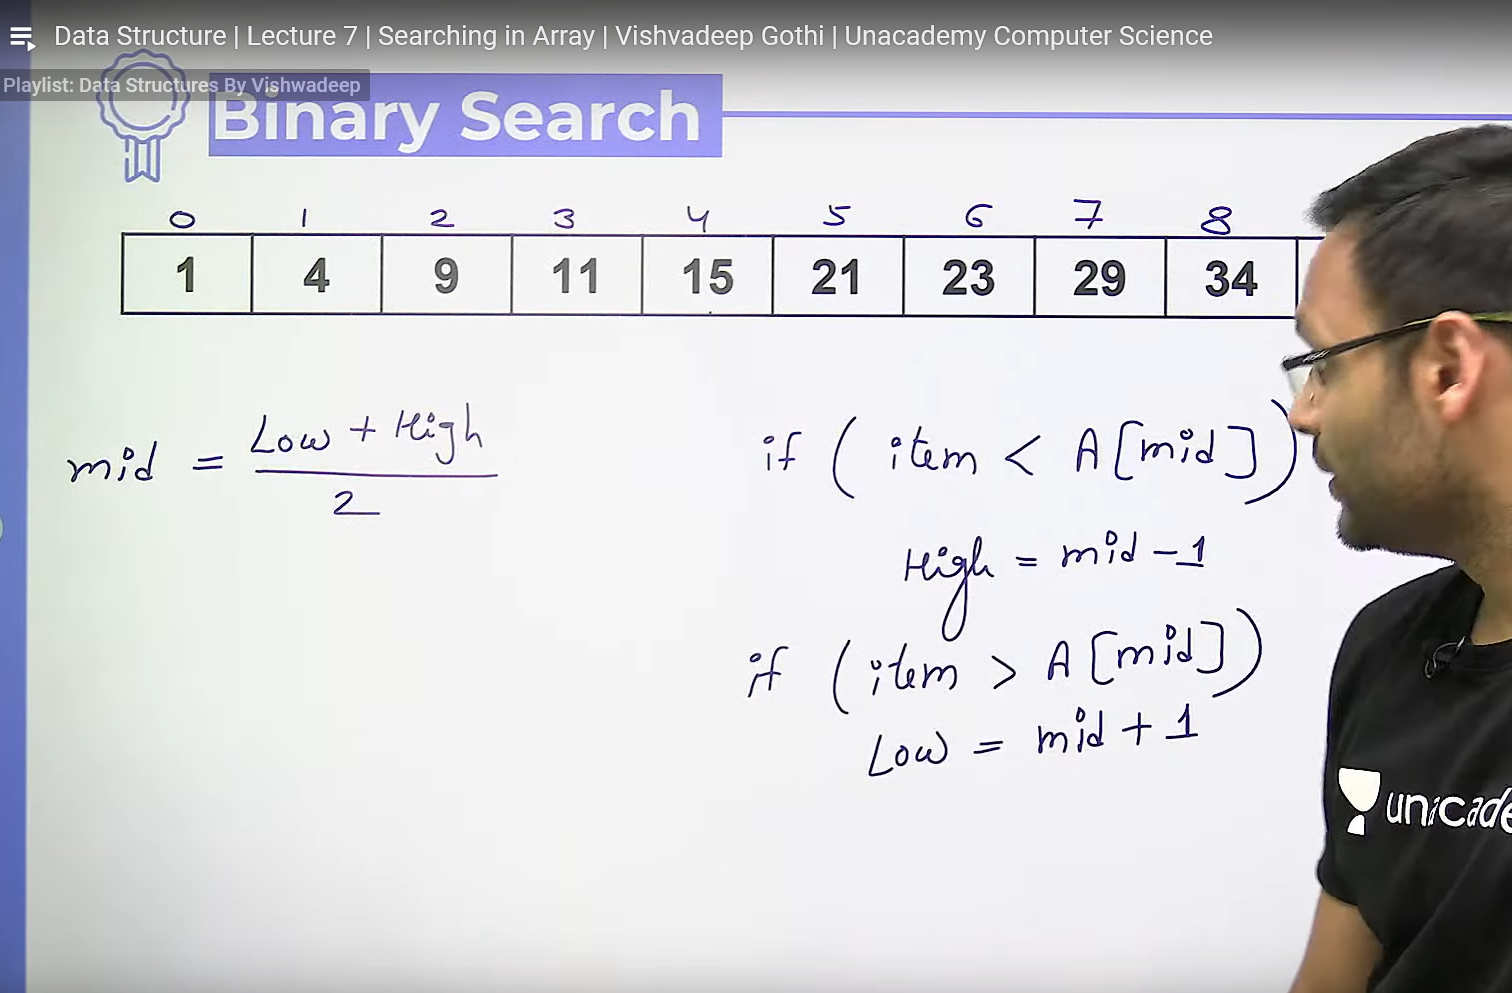 Data Structure | Lecture 7 | Searching in Array | Vishvadeep Gothi | Unacademy Computer Science
Playlist: Data Structures By Vishwadeep
Binary Search
0 1 2 3 4 5 6 7 8
1 4 9 11 15 21 23 29 34
mid = Low + High
2
if ( item < A[mid])
High = mid - 1
if (item > A[mid])
Low = mid + 1